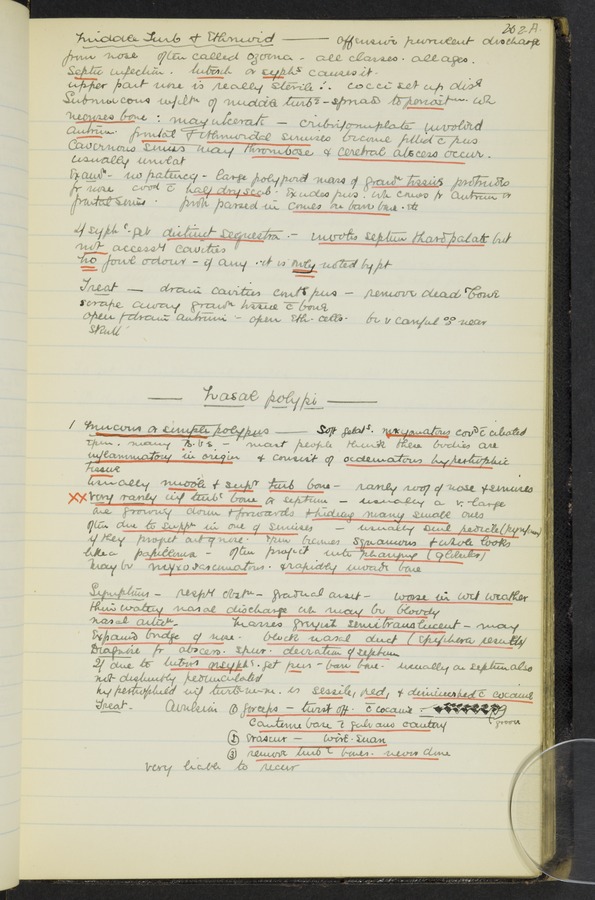 202 A.
Middle Turb & Ethmoid — offensive purulent discharge
from nose often called ozoena - all classes. all ages.
Septic infection. tubercle or syphs causes it.
upper part nose is really sterile ∴ cocci set up dis.
Submucous infiltn of middle turb - spreads to periosteum. wh
necroses bone : may ulcerate - cribriform plate involved
Antrum frontal & ethmoidal sinuses become filled c pus
Cavernous sinus may thrombose & cerebral abscess occur.
usually unilat
Examn - no patency - large polypoid mass of grann tissue protrudes
fr nose covd c half dry scab. Exudes pus. wh comes fr antrum or
frontal sinus. probe passed in comes on bare bone. etc
If syph. get distinct sequestra. - involves septum & hard palate but
not accessy cavities
No foul odour - if any it is only noted by pt
Treat — drain cavities contg pus - remove dead bone
scrape away grann tissue c bone
open & drain antrum - open eth. cells. be v careful near
skull
— Nasal polypi —
1 Mucous or simple polypus — Soft gelats. myxomatous covd c ciliated
epm. many b.vs - most people think these bodies are
inflammatory in origin & consist of oedematous hypertrophic
tissue
Usually middle & supr turb bone - rarely roof of nose & sinuses
XX very rarely inf turb bone or septum - usually a v. large
one growing down & forwards & hiding many small ones
often due to suppn in one of sinuses - usually
if they project out of nose. epm becomes squamous & whole looks
like a papilloma - often project into pharynx
may be myxosarcomatous. & rapidly invade bone
Symptoms - respy obstn - gradual onset - worse in wet weather
thin watery nasal discharge wh may be bloody
nasal masses greyish semitranslucent - may
Expand bridge of nose. block nasal duct (epiphora results)
Diagnose fr abscess. spur. deviation of septum
If due to tuberc or syph. get pus - bare bone. usually on septum also
not distinctly pedunculated
hypertrophied inf turb is sessile, red, & diminished c cocaine
Treat. Avulsion ① forceps - twist off. c cocaine
Cauterise base c galvano cautery
② Ecraseur - wire snare
③ remove turb bones. never done
very liable to recur